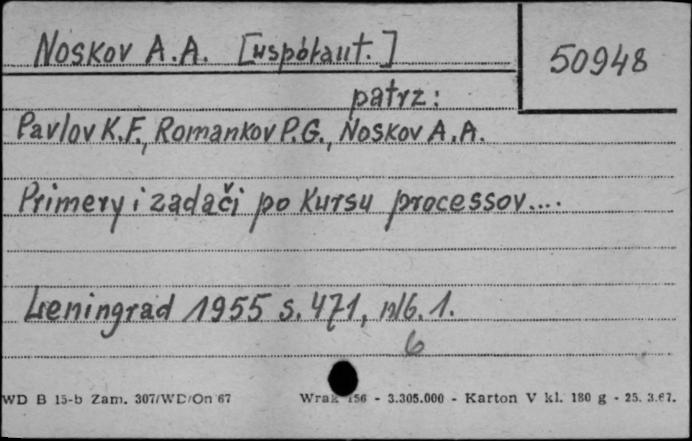 Noskov A.A. [współaut.]
50948
patrz:
Pavlov K.F., Romankov P.G., Noskov A.A.
Primery i zadači po kursu processov....
Leningrad 1955 s. 471, nlb. 1.
6
WD B 15-b Zam. 307/WD/On 67 Wrak 156 - 3.305.000 - Karton V kl. 180 g - 25. 3.67.